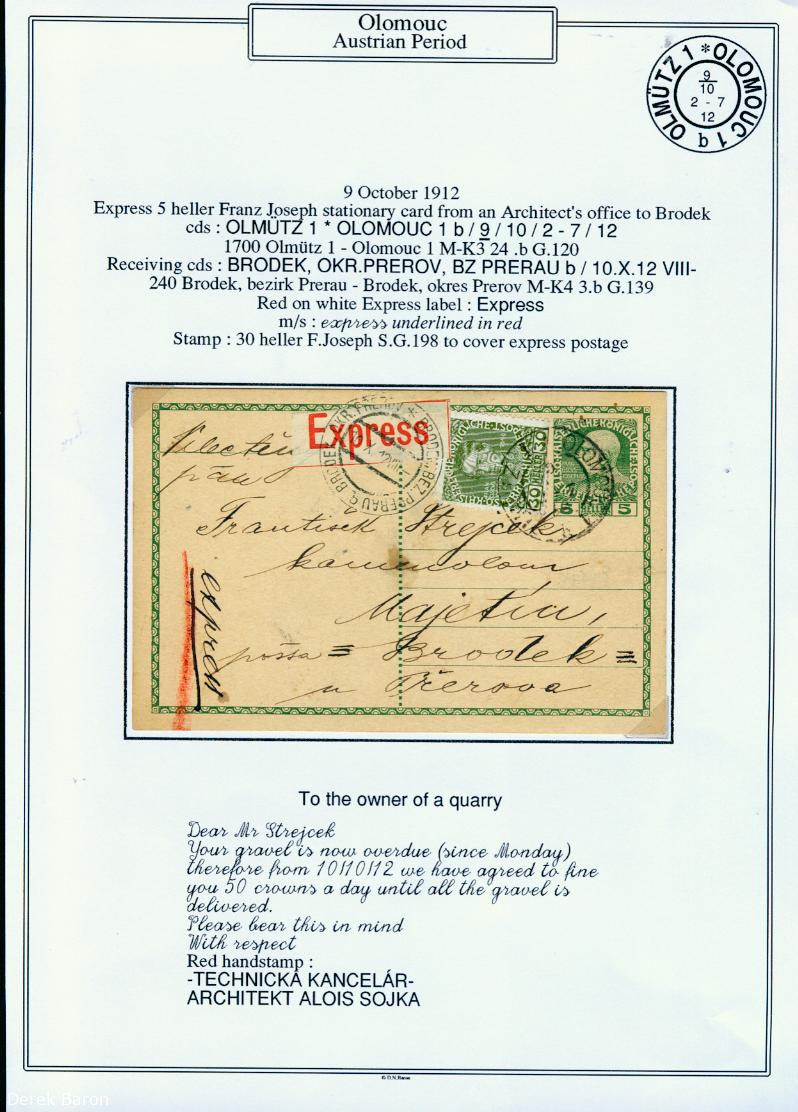 Olomouc
Austrian Period
OLMÜTZ 1 * OLOMOUC 1 b
9
10
2 - 7
12
9 October 1912
Express 5 heller Franz Joseph stationary card from an Architect's office to Brodek
cds : OLMÜTZ 1 * OLOMOUC 1 b / 9 / 10 / 2 - 7 / 12
1700 Olmütz 1 - Olomouc 1 M-K3 24 .b G.120
Receiving cds : BRODEK, OKR.PREROV, BZ PRERAU b / 10.X.12 VIII-
240 Brodek, bezirk Prerau - Brodek, okres Prerov M-K4 3.b G.139
Red on white Express label : Express
m/s : express underlined in red
Stamp : 30 heller F.Joseph S.G.198 to cover express postage
Express
30 30
5 5
Velectěný
pán
František Strejček
kamenolom
Majetín,
pošta = Brodek =
u Přerova
express
To the owner of a quarry
Dear Mr Strejcek
Your gravel is now overdue (since Monday)
therefore from 10/10/12 we have agreed to fine
you 50 crowns a day until all the gravel is
delivered.
Please bear this in mind
With respect
Red handstamp :
-TECHNICKÁ KANCELÁR-
ARCHITEKT ALOIS SOJKA
© D.N.Baron
Derek Baron